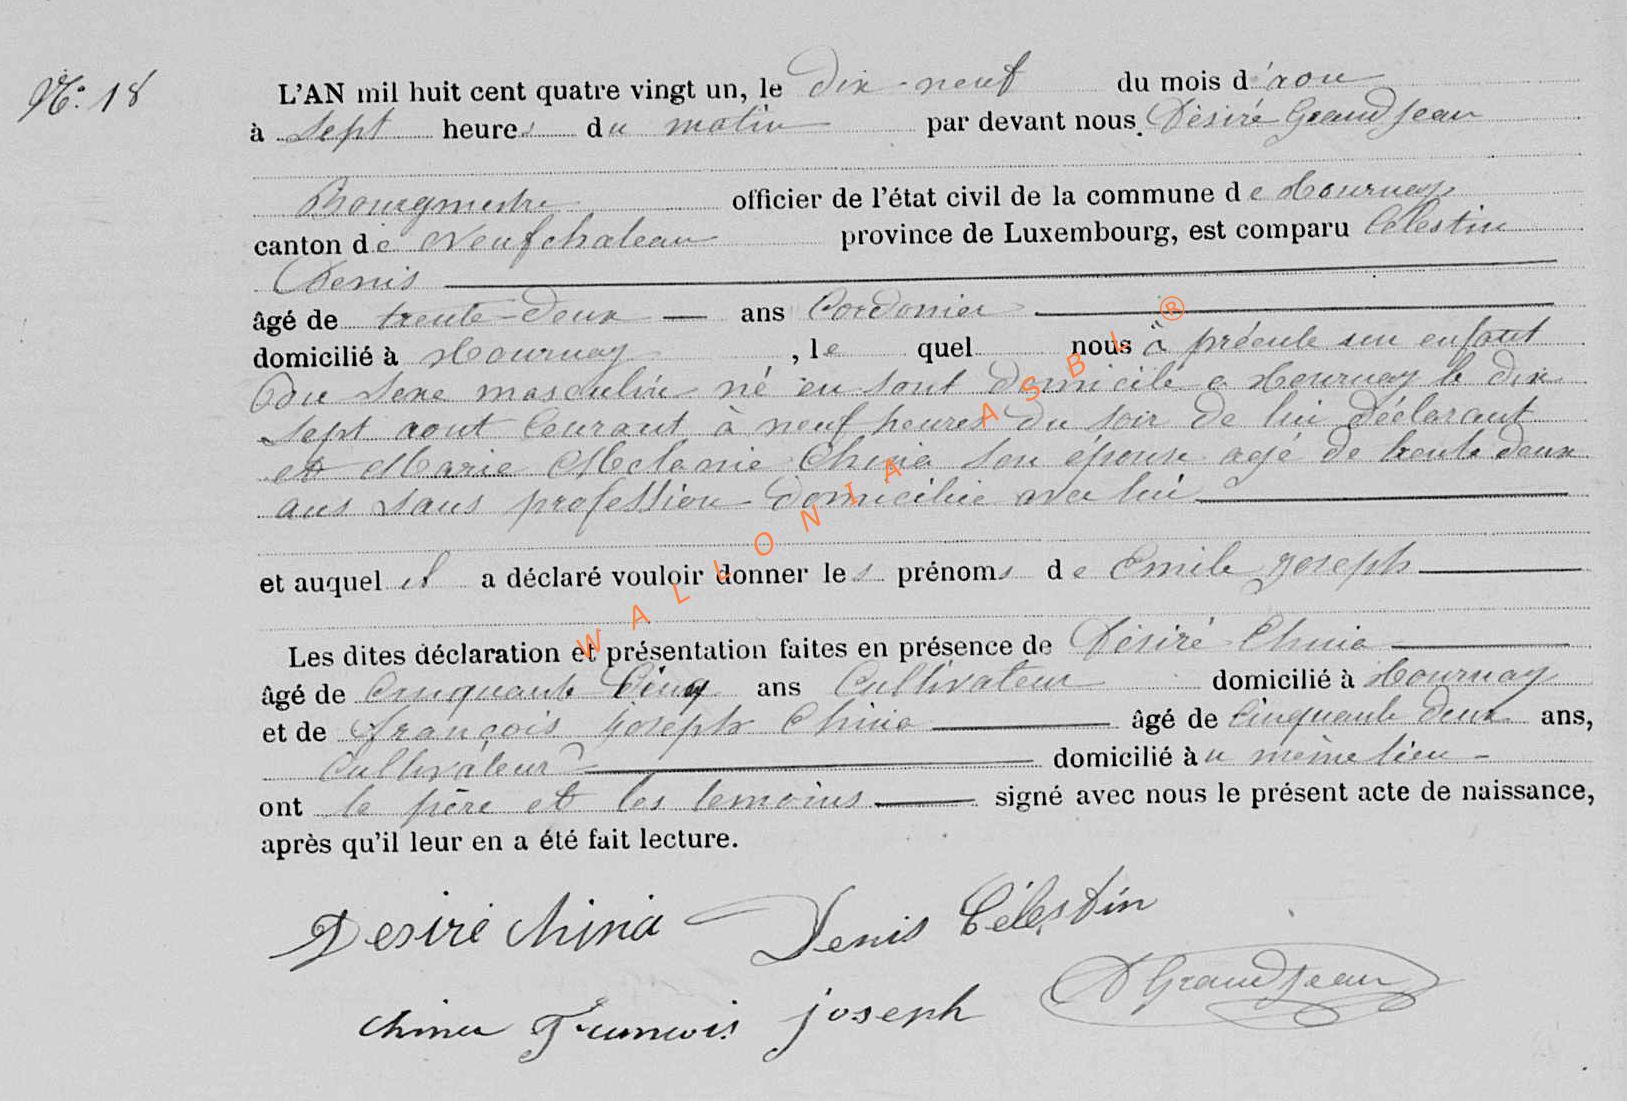 N° 18
L'AN mil huit cent quatre vingt un, le dix-neuf du mois d'aou
à sept heures du matin par devant nous Désiré Grandjean
Bourgmestre officier de l'état civil de la commune de Hournay
canton de Neufchateau province de Luxembourg, est comparu Célestin
Denis
âgé de trente-deux ans Cordonier
domicilié à Hournay, le quel nous à présenté un enfant
du sexe masculin né en sont domicilé a Hournay le dix
sept aout Courant à neuf heures du soir de lui déclarant
et Marie Melanie Chinia son épouse agé de trente deux
ans sans profession domiciliée avec lui
et auquel il a déclaré vouloir donner les prénoms de Emile Joseph
Les dites déclaration et présentation faites en présence de Désiré Chinia
âgé de Cinquante Cinq ans Cultivateur domicilié à Hournay
et de françois joseph Chinia âgé de Cinquante deux ans,
Cultivateur domicilié àu même lieu
ont le père et les temoins signé avec nous le présent acte de naissance,
après qu'il leur en a été fait lecture.
Desiré chinia Denis Célestin
chinia Francois joseph D Grandjean
WALLONIA ASBL ®